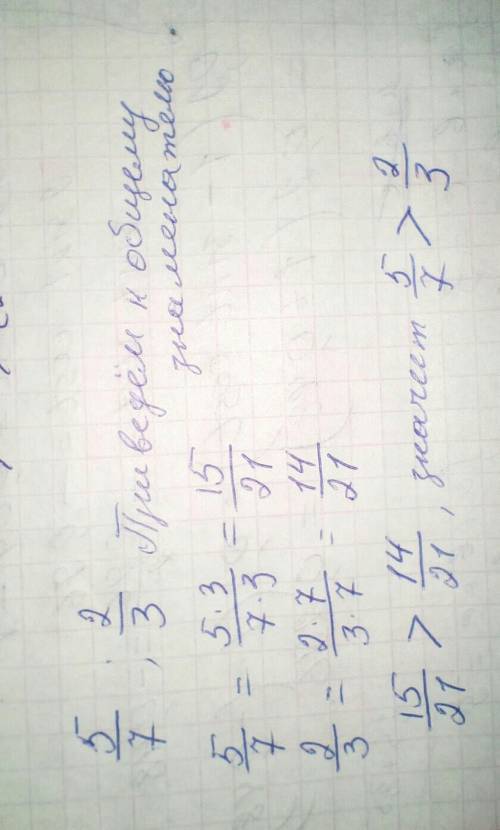 5/7 ; 2/3 Приведём к общему
знаменателю.
5/7 = 5·3/7·3 = 15/21
2/3 = 2·7/3·7 = 14/21
15/21 > 14/21, значит 5/7 > 2/3